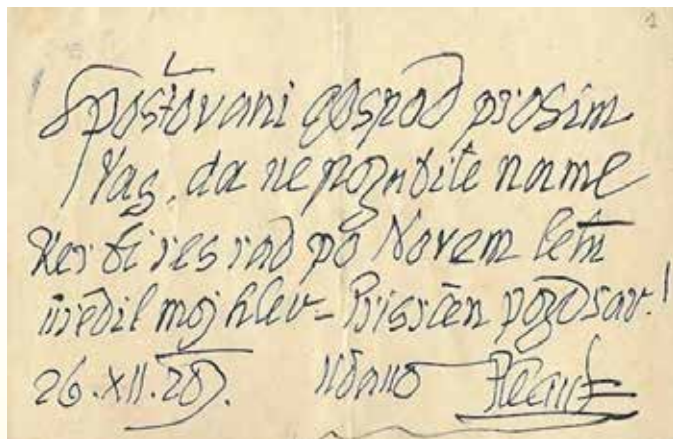 1
Spoštovani gospod prosim
Vas, da ne pozabite name
Ker bi res rad po Novem letu
uredil moj hlev – Prisrčen pozdrav!
26.XII.28. Udano